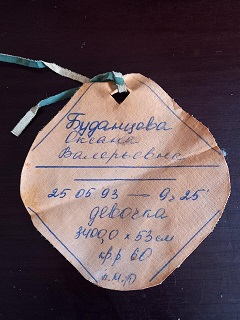 Буданцова
Оксана
Валерьевна
25 05 93 — 9, 25'
девочка
3400,0 x 53 см